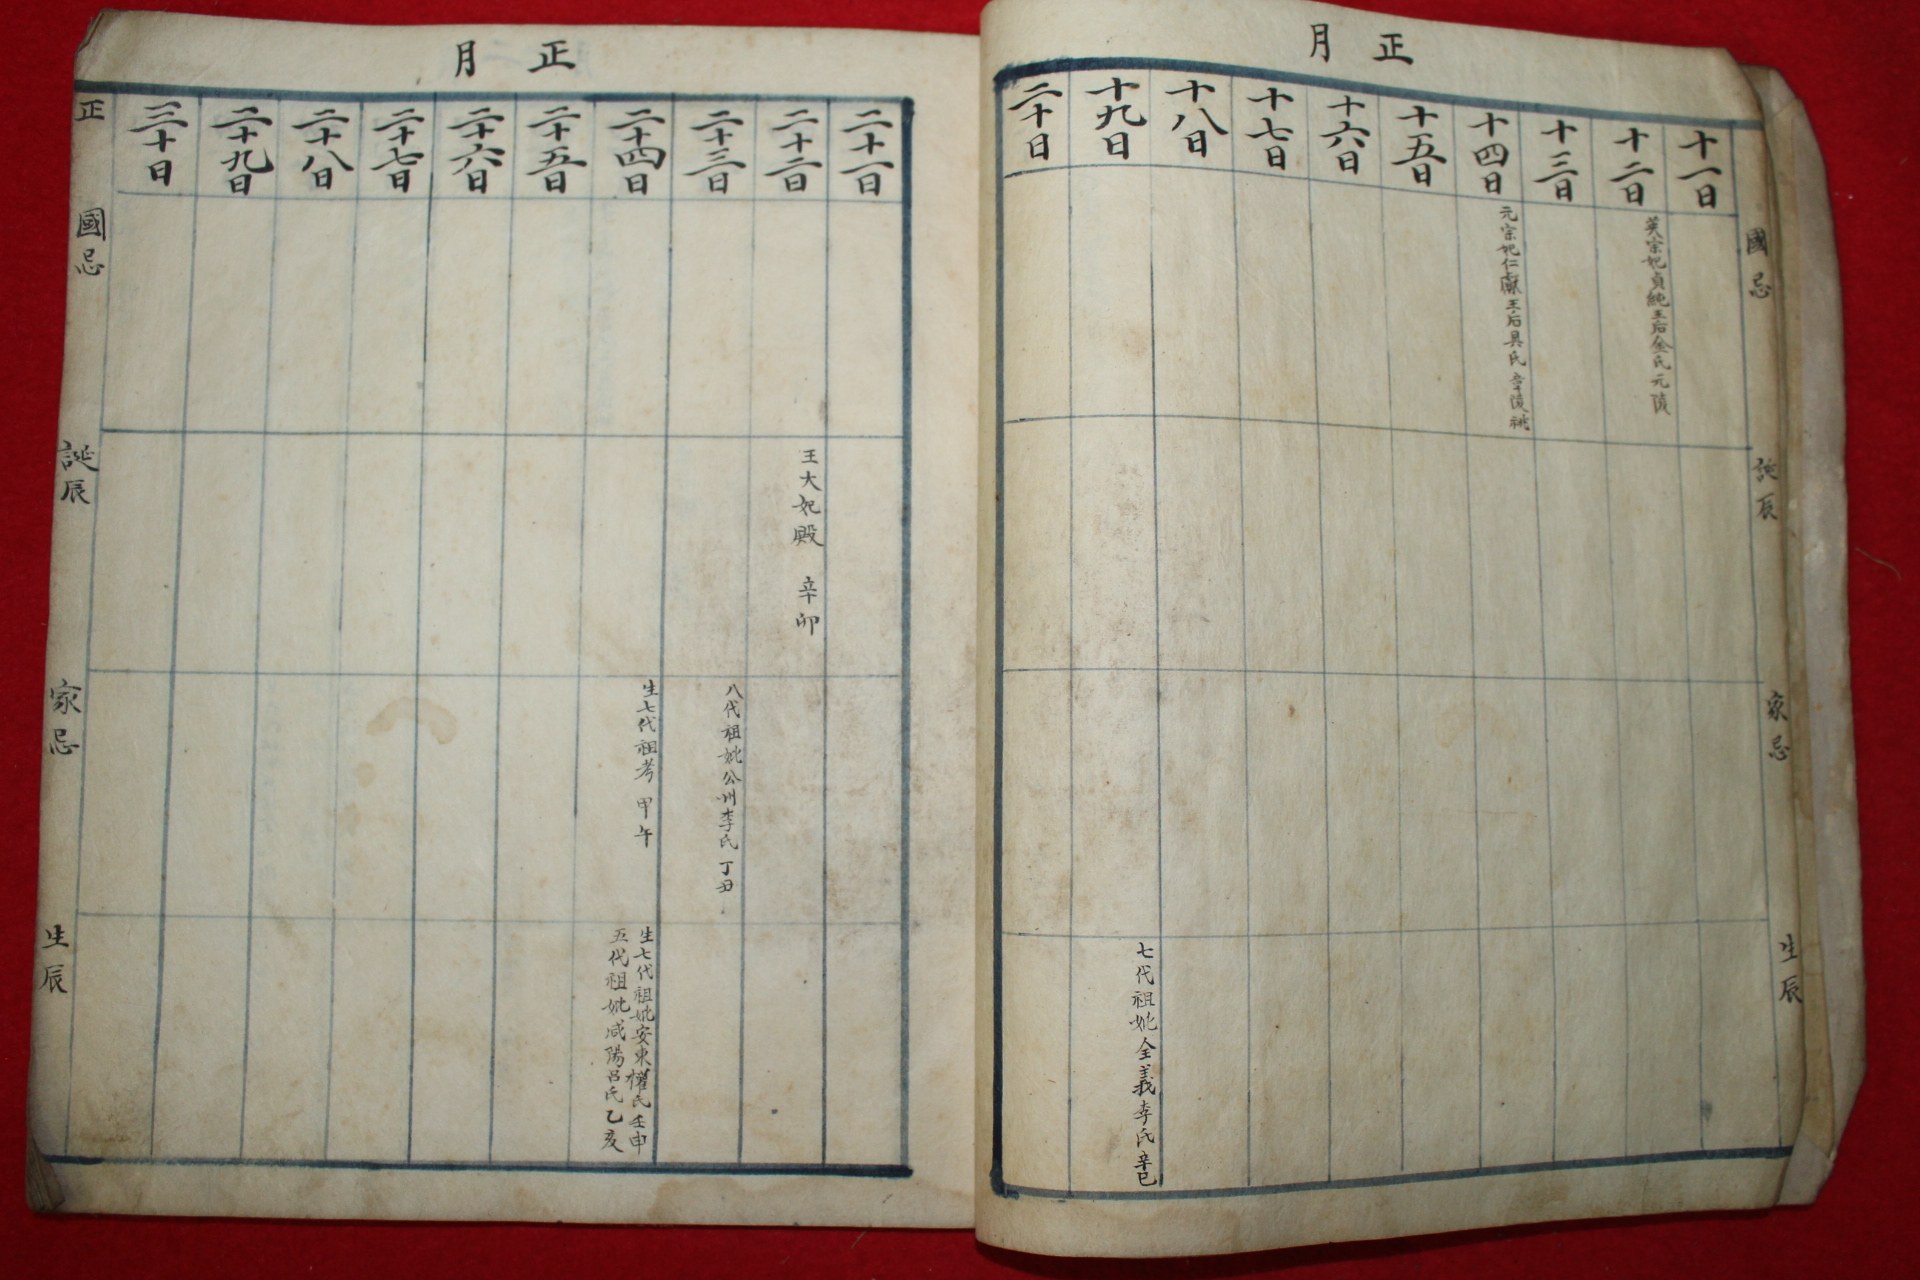 正月
國忌
誕辰
家忌
生辰
十一日
十二日
英宗妃貞純王后金氏元陵
十三日
十四日
元宗妃仁獻王后具氏章陵祧
十五日
十六日
十七日
十八日
十九日
七代祖妣全義李氏辛巳
二十日
正月
二十一日
二十二日
王大妃殿 辛卯
二十三日
八代祖妣公州李氏丁丑
二十四日
生七代祖考 甲午
生七代祖妣安東權氏壬申
五代祖妣咸陽呂氏乙亥
二十五日
二十六日
二十七日
二十八日
二十九日
三十日
正
國忌
誕辰
家忌
生辰